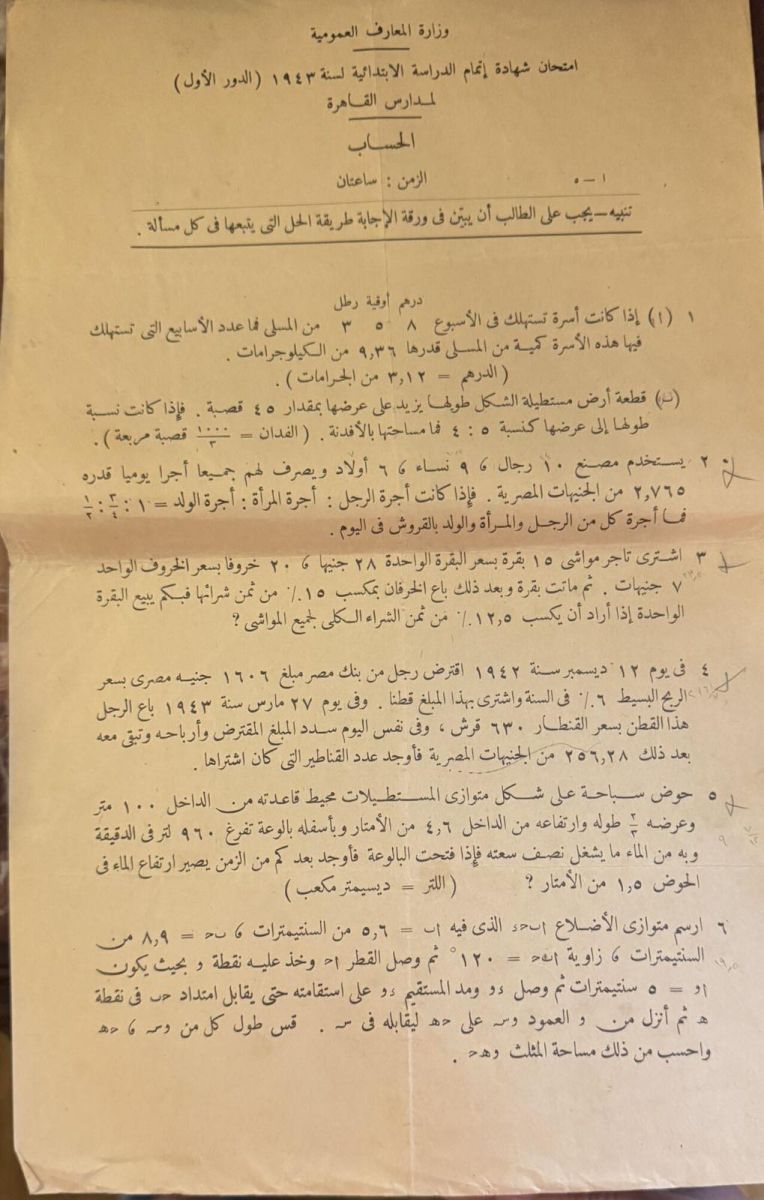 وزارة المعارف العمومية
امتحان شهادة إتمام الدراسة الابتدائية لسنة ١٩٤٣ (الدور الأول)
لمدارس القاهرة
الحساب
١ – ٥ الزمن : ساعتان
تنبيه – يجب على الطالب أن يبيّن فى ورقة الإجابة طريقة الحل التى يتبعها فى كل مسألة .
درهم أوقية رطل
١ (ا) إذا كانت أسرة تستهلك فى الأسبوع ٨ ٥ ٣ من المسلى فما عدد الأسابيع التى تستهلك
فيها هذه الأسرة كمية من المسلى قدرها ٩,٣٦ من الكيلوجرامات .
( الدرهم = ٣,١٢ من الجرامات ) .
(ب) قطعة أرض مستطيلة الشكل طولها يزيد على عرضها بمقدار ٤٥ قصبة . فإذا كانت نسبة
طولها إلى عرضها كنسبة ٥ : ٤ فما مساحتها بالأفدنة . ( الفدان = ١٠٠٠/٣ قصبة مربعة ) .
٢ – يستخدم مصنع ١٠ رجال ٩ نساء ٦ أولاد ويصرف لهم جميعا أجرا يوميا قدره
٢,٧٦٥ من الجنيهات المصرية . فإذا كانت أجرة الرجل : أجرة المرأة : أجرة الولد = ١ : ٣/٤ : ١/٢
فما أجرة كل من الرجل والمرأة والولد بالقروش فى اليوم .
٣ اشترى تاجر مواشى ١٥ بقرة بسعر البقرة الواحدة ٢٨ جنيها و ٢٠ خروفا بسعر الخروف الواحد
٧ جنيهات . ثم ماتت بقرة وبعد ذلك باع الخرفان بمكسب ١٥٪ من ثمن شرائها فبكم يبيع البقرة
الواحدة إذا أراد أن يكسب ١٢,٥٪ من ثمن الشراء الكلى لجميع المواشى ؟
٤ فى يوم ١٢ ديسمبر سنة ١٩٤٢ اقترض رجل من بنك مصر مبلغ ١٦٠٦ جنيه مصرى بسعر
الربح البسيط ٦٪ فى السنة واشترى بهذا المبلغ قطنا . وفى يوم ٢٧ مارس سنة ١٩٤٣ باع الرجل
هذا القطن بسعر القنطار ٦٣٠ قرش ، وفى نفس اليوم سدد المبلغ المقترض وأرباحه وتبقى معه
بعد ذلك ٢٥٦,٢٨ من الجنيهات المصرية فأوجد عدد القناطير التى كان اشتراها .
٥ حوض سباحة على شكل متوازى المستطيلات محيط قاعدته من الداخل ١٠٠ متر
وعرضه ٢/٣ طوله وارتفاعه من الداخل ٤,٦ من الأمتار وبأسفله بالوعة تفرغ ٩٦٠ لتر فى الدقيقة
وبه من الماء ما يشغل نصف سعته فإذا فتحت البالوعة فأوجد بعد كم من الزمن يصير ارتفاع الماء فى
الحوض ١,٥ من الأمتار ؟ ( اللتر = ديسيمتر مكعب )
٦ ارسم متوازى الأضلاع ابحء الذى فيه اب = ٥,٦ من السنتيمترات و بح = ٨,٩ من
السنتيمترات و زاوية ابح = ١٢٠° ثم وصل القطر اح وخذ عليه نقطة و بحيث يكون
او = ٥ سنتيمترات ثم وصل ءو ومد المستقيم ءو على استقامته حتى يقابل امتداد حب فى نقطة
ه ثم أنزل من و العمود وس على حه ليقابله فى س . قس طول كل من وس و حه
واحسب من ذلك مساحة المثلث وهح .